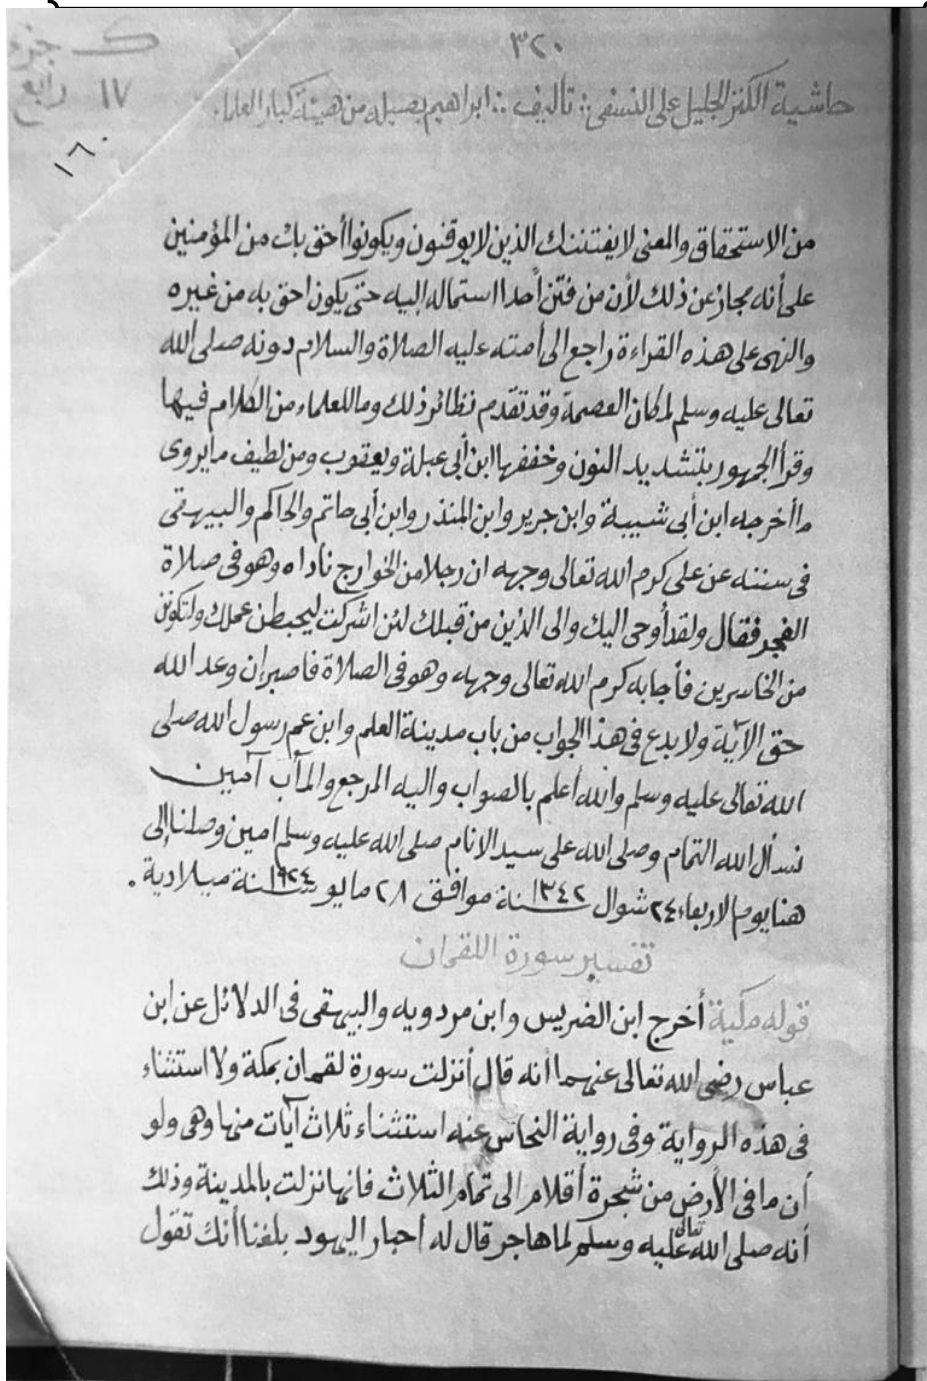 ٣٢٠
ك جزء
١٧ رابع
حاشية الكنز الجليل على النسفى :: تأليف :: ابراهيم بصيله من هيئة كبار العلماء.
١٦٠
من الاستحقاق والمعنى لا يفتننك الذين لا يوقنون ويكونوا أحق بك من المؤمنين
على أنه مجاز عن ذلك لأن من فتن أحدا استماله إليه حتى يكون احق به من غيره
والنهى على هذه القراءة راجع الى أمته عليه الصلاة والسلام دونه صلى الله
تعالى عليه وسلم لمكان العصمة وقد تقدم نظائر ذلك وما للعلماء من الكلام فيها
وقرأ الجمهور بتشديد النون وخففها ابن أبى عبلة ويعقوب ومن لطيف ما يروى
ما أخرجه ابن أبى شيبة وابن جرير وابن المنذر وابن أبى حاتم والحاكم والبيهقى
فى سننه عن على كرم الله تعالى وجهه ان رجلا من الخوارج ناداه وهو فى صلاة
الفجر فقال ولقد أوحى اليك والى الذين من قبلك لئن اشركت ليحبطن عملك ولتكونن
من الخاسرين فأجابه كرم الله تعالى وجهه وهو فى الصلاة فاصبر إن وعد الله
حق الآية ولا بدع فى هذا الجواب من باب مدينة العلم وابن عم رسول الله صلى
الله تعالى عليه وسلم والله أعلم بالصواب واليه المرجع والمآب آمين
نسأل الله التمام وصلى الله على سيد الانام صلى الله عليه وسلم امين وصلنا إلى
هنا يوم الاربعاء ٢٤ شوال ١٣٤٢ سنة موافق ٢٨ مايو ١٩٢٤ سنة ميلادية.
تفسير سورة اللقمان
قوله مكية أخرج ابن الضريس وابن مردويه والبيهقى فى الدلائل عن ابن
عباس رضى الله تعالى عنهما أنه قال أنزلت سورة لقمان بمكة ولا استثناء
فى هذه الرواية وفى رواية النحاس عنه استثناء ثلاث آيات منها وهى ولو
أن ما فى الأرض من شجرة أقلام الى تمام الثلاث فانها نزلت بالمدينة وذلك
أنه صلى الله تعالى عليه وسلم لما هاجر قال له احبار اليهود بلغنا أنك تقول